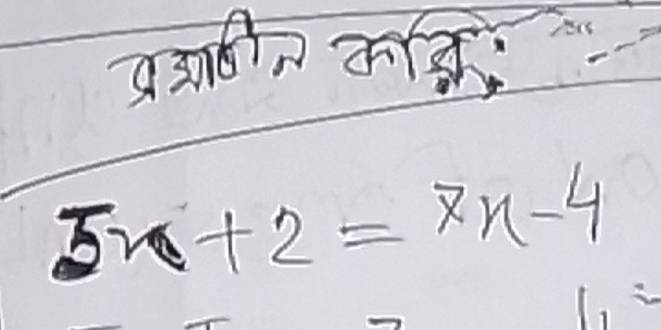 সমাধান করি:
5x + 2 = 7x - 4